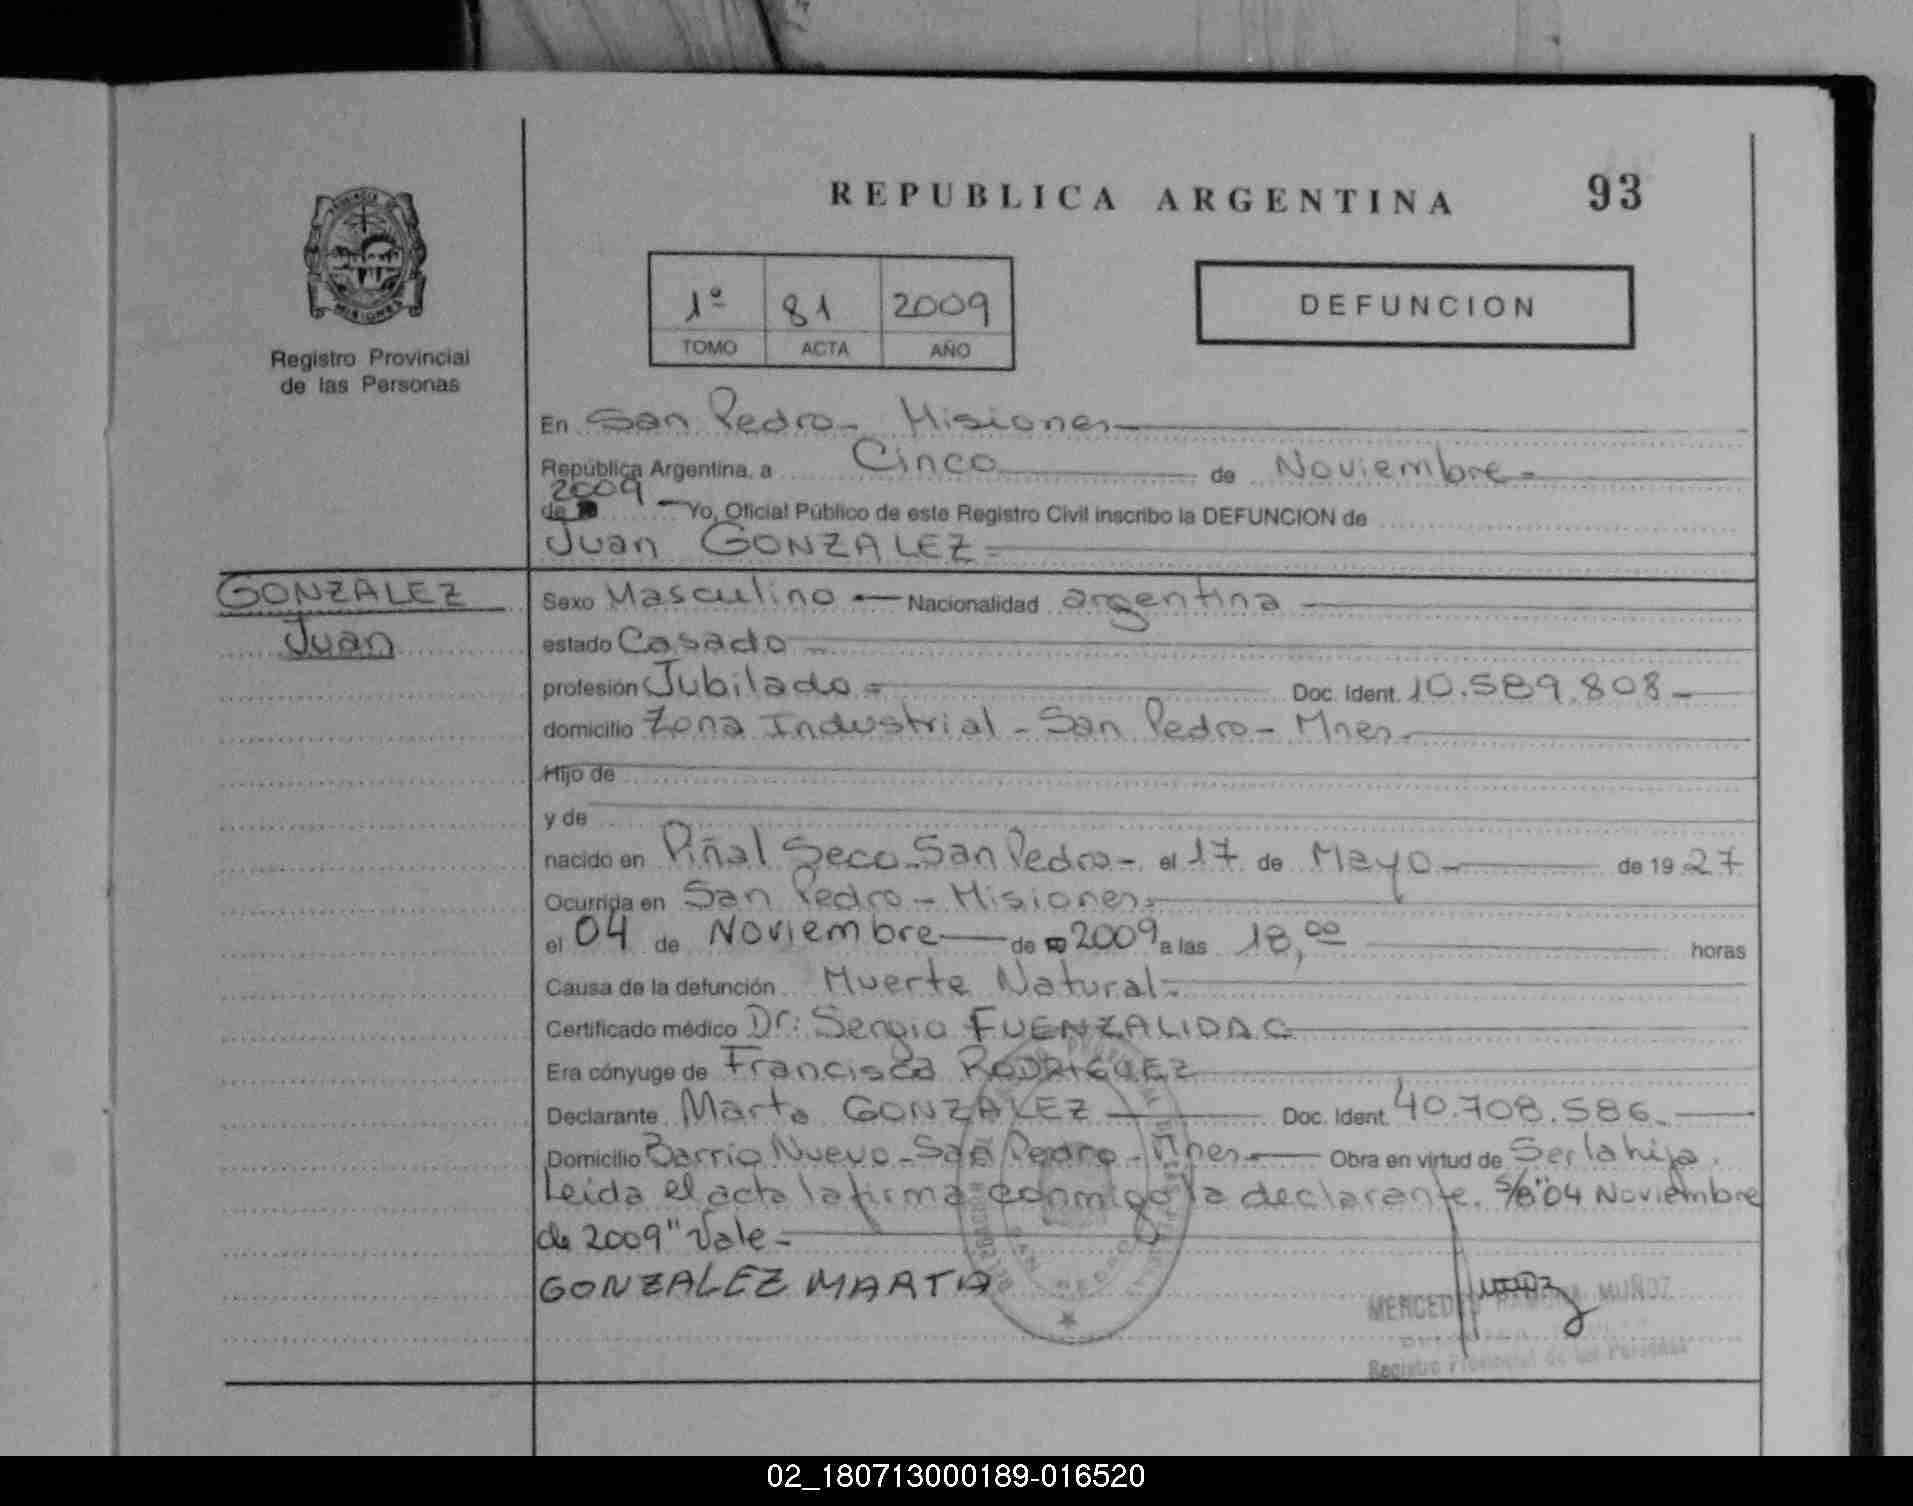 REPUBLICA ARGENTINA
93
PROVINCIA DE
MISIONES
Registro Provincial
de las Personas
1º 81 2009
TOMO ACTA AÑO
DEFUNCION
En San Pedro - Misiones
República Argentina, a Cinco de Noviembre -
2009
de Yo, Oficial Público de este Registro Civil inscribo la DEFUNCION de
Juan GONZALEZ
GONZALEZ
Juan
Sexo Masculino Nacionalidad argentina
estado Casado
profesión Jubilado Doc. Ident. 10.589.808
domicilio Zona Industrial - San Pedro - Mnes.
Hijo de
y de
nacido en Piñal Seco - San Pedro - el 17 de Mayo de 19 27
Ocurrida en San Pedro - Misiones.
el 04 de Noviembre de 2009 a las 18,00 horas
Causa de la defunción Muerte Natural
Certificado médico Dr: Sergio FUENZALIDA C
Era cónyuge de Francisca RODRIGUEZ
Declarante Marta GONZALEZ Doc. Ident. 40.708.586
Domicilio Barrio Nuevo - San Pedro - Mnes Obra en virtud de Ser la hija.
Leida el acta la firma conmigo la declarante. S/B "04 Noviembre
de 2009" Vale -
GONZALEZ MARTA
MERCEDES RAMONA MUÑOZ
Registro Provincial de las Personas
SAN PEDRO
02_180713000189-016520